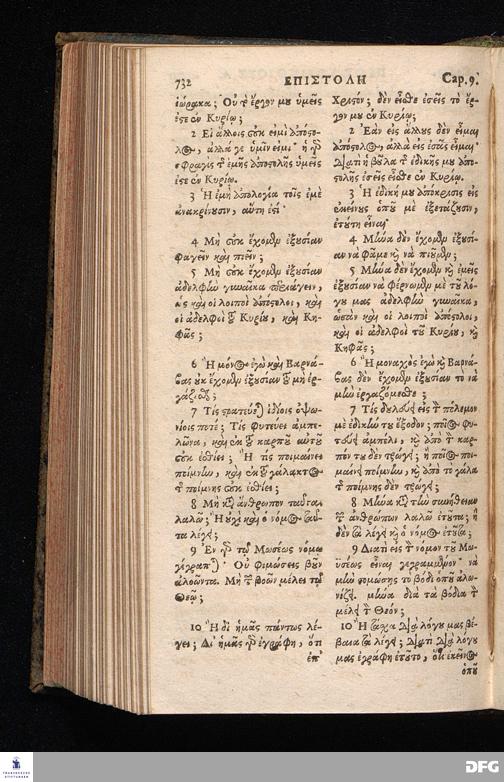 732 ΕΠΙΣΤΟΛΗ Cap. 9.
ἑώρακα; Οὐ τὸ ἔργον μου ὑμεῖς
ἐστε ἐν Κυρίῳ;
2 Εἰ ἄλλοις οὐκ εἰμὶ ἀπόστο-
λος, ἀλλά γε ὑμῖν εἰμι· ἡ γὸ
σφραγὶς τ ἐμῆς ἀποστολῆς ὑμεῖς
ἐστε ἐν Κυρίῳ.
3 Ἡ ἐμὴ ἀπολογία τοῖς ἐμὲ
ἀνακρίνουσιν, αὕτη ἐστί·
4 Μὴ οὐκ ἔχομεν ἐξουσίαν
φαγεῖν καὶ πιεῖν;
5 Μὴ οὐκ ἔχομεν ἐξουσίαν
ἀδελφὴν γυναῖκα περιάγειν,
ὡς καὶ οἱ λοιποὶ ἀπόστολοι, καὶ
οἱ ἀδελφοὶ τοῦ Κυρίου, καὶ Κη-
φᾶς;
6 Ἢ μόνος ἐγὼ καὶ Βαρνά-
βας οὐκ ἔχομεν ἐξουσίαν τοῦ μὴ ἐρ-
γάζεσθαι;
7 Τίς στρατεύεται ἰδίοις ὀψω-
νίοις ποτέ; Τίς φυτεύει ἀμπε-
λῶνα, καὶ ἐκ τοῦ καρποῦ αὐτοῦ
οὐκ ἐσθίει; Ἢ τίς ποιμαίνει
ποίμνην, καὶ ἐκ τοῦ γάλακτος
τ ποίμνης οὐκ ἐσθίει;
8 Μὴ κατὰ ἄνθρωπον ταῦτα
λαλῶ; Ἢ οὐχὶ καὶ ὁ νόμος ταῦ-
τα λέγει;
9 Ἐν γὸ τῷ Μωσέως νόμῳ
γέγραπται· Οὐ φιμώσεις βοῦν
ἀλοῶντα. Μὴ τῶν βοῶν μέλει τῷ
Θεῷ;
10 Ἢ δι' ἡμᾶς πάντως λέ-
γει; Δι' ἡμᾶς γὸ ἐγράφη, ὅτι
ἐπ'
Χριστόν; δὲν εἶσθε ἐσεῖς τὸ ἔρ-
γον μου ἐν Κυρίῳ;
2 Ἐὰν εἰς ἄλλους δὲν εἶμαι
ἀπόστολος, ἀλλὰ εἰς ἐσᾶς εἶμαι·
διατὶ ἡ βοῦλα τ ἐδικῆς μου ἀπο-
στολῆς ἐσεῖς εἶσθε ἐν Κυρίῳ.
3 Ἡ ἐδική μου ἀπόκρισις εἰς
ἐκείνους ὁποῦ μὲ ἐξετάζουσιν,
ἐτούτη εἶναι·
4 Μήνα δὲν ἔχομεν ἐξουσί-
αν νὰ φᾶμε καὶ νὰ πιοῦμεν;
5 Μήνα δὲν ἔχομεν καὶ ἐμεῖς
ἐξουσίαν νὰ φέρνωμεν μὲ τοῦ λό-
γου μας ἀδελφὴν γυναῖκα,
ὡσὰν καὶ οἱ λοιποὶ ἀπόστολοι,
καὶ οἱ ἀδελφοὶ τοῦ Κυρίου, καὶ
Κηφᾶς;
6 Ἢ μοναχὸς ἐγὼ καὶ Βαρνά-
βας δὲν ἔχομεν ἐξουσίαν τοῦ νὰ
μὴν ἐργαζόμεσθε;
7 Τίς δουλεύει εἰς τ πόλεμον
μὲ ἐδικήν του ἔξοδον; ποῖος φυ-
τεύει ἀμπέλι, καὶ ἀπὸ τ καρ-
πόν του δὲν τρώγει; ἢ ποῖος ποι-
μαίνει ποίμνην, καὶ ἀπὸ τὸ γάλα
τ ποίμνης δὲν τρώγει;
8 Μήνα κατὰ τὴν συνήθειαν
τῶν ἀνθρώπων λαλῶ ἐτοῦτα; ἢ
δὲν τὰ λέγει καὶ ὁ νόμος ἐτοῦτα;
9 Διατὶ εἰς τ νόμον τοῦ Μω-
ϋσέως εἶναι γεγραμμένον· νὰ
μὴν φιμώσῃς τὸ βόδι ὁποῦ ἁλω-
νίζει. μήνα διὰ τὰ βόδια τ
μέλει τ Θεόν;
10 Ἢ τάχα διὰ λόγου μας βέ-
βαια τὰ λέγει; διατὶ διὰ λόγου
μας ἐγράφη ἐτοῦτο, ὅτι ἐκεῖνος
ὁποῦ
DFG